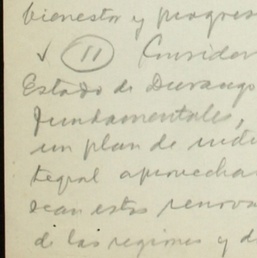 bienestar y progres
✓ (11) Consider
Estado de Durango
fundamentales,
un plan de indu
tegral aprovecha
sean estos renova
de las regiones y d